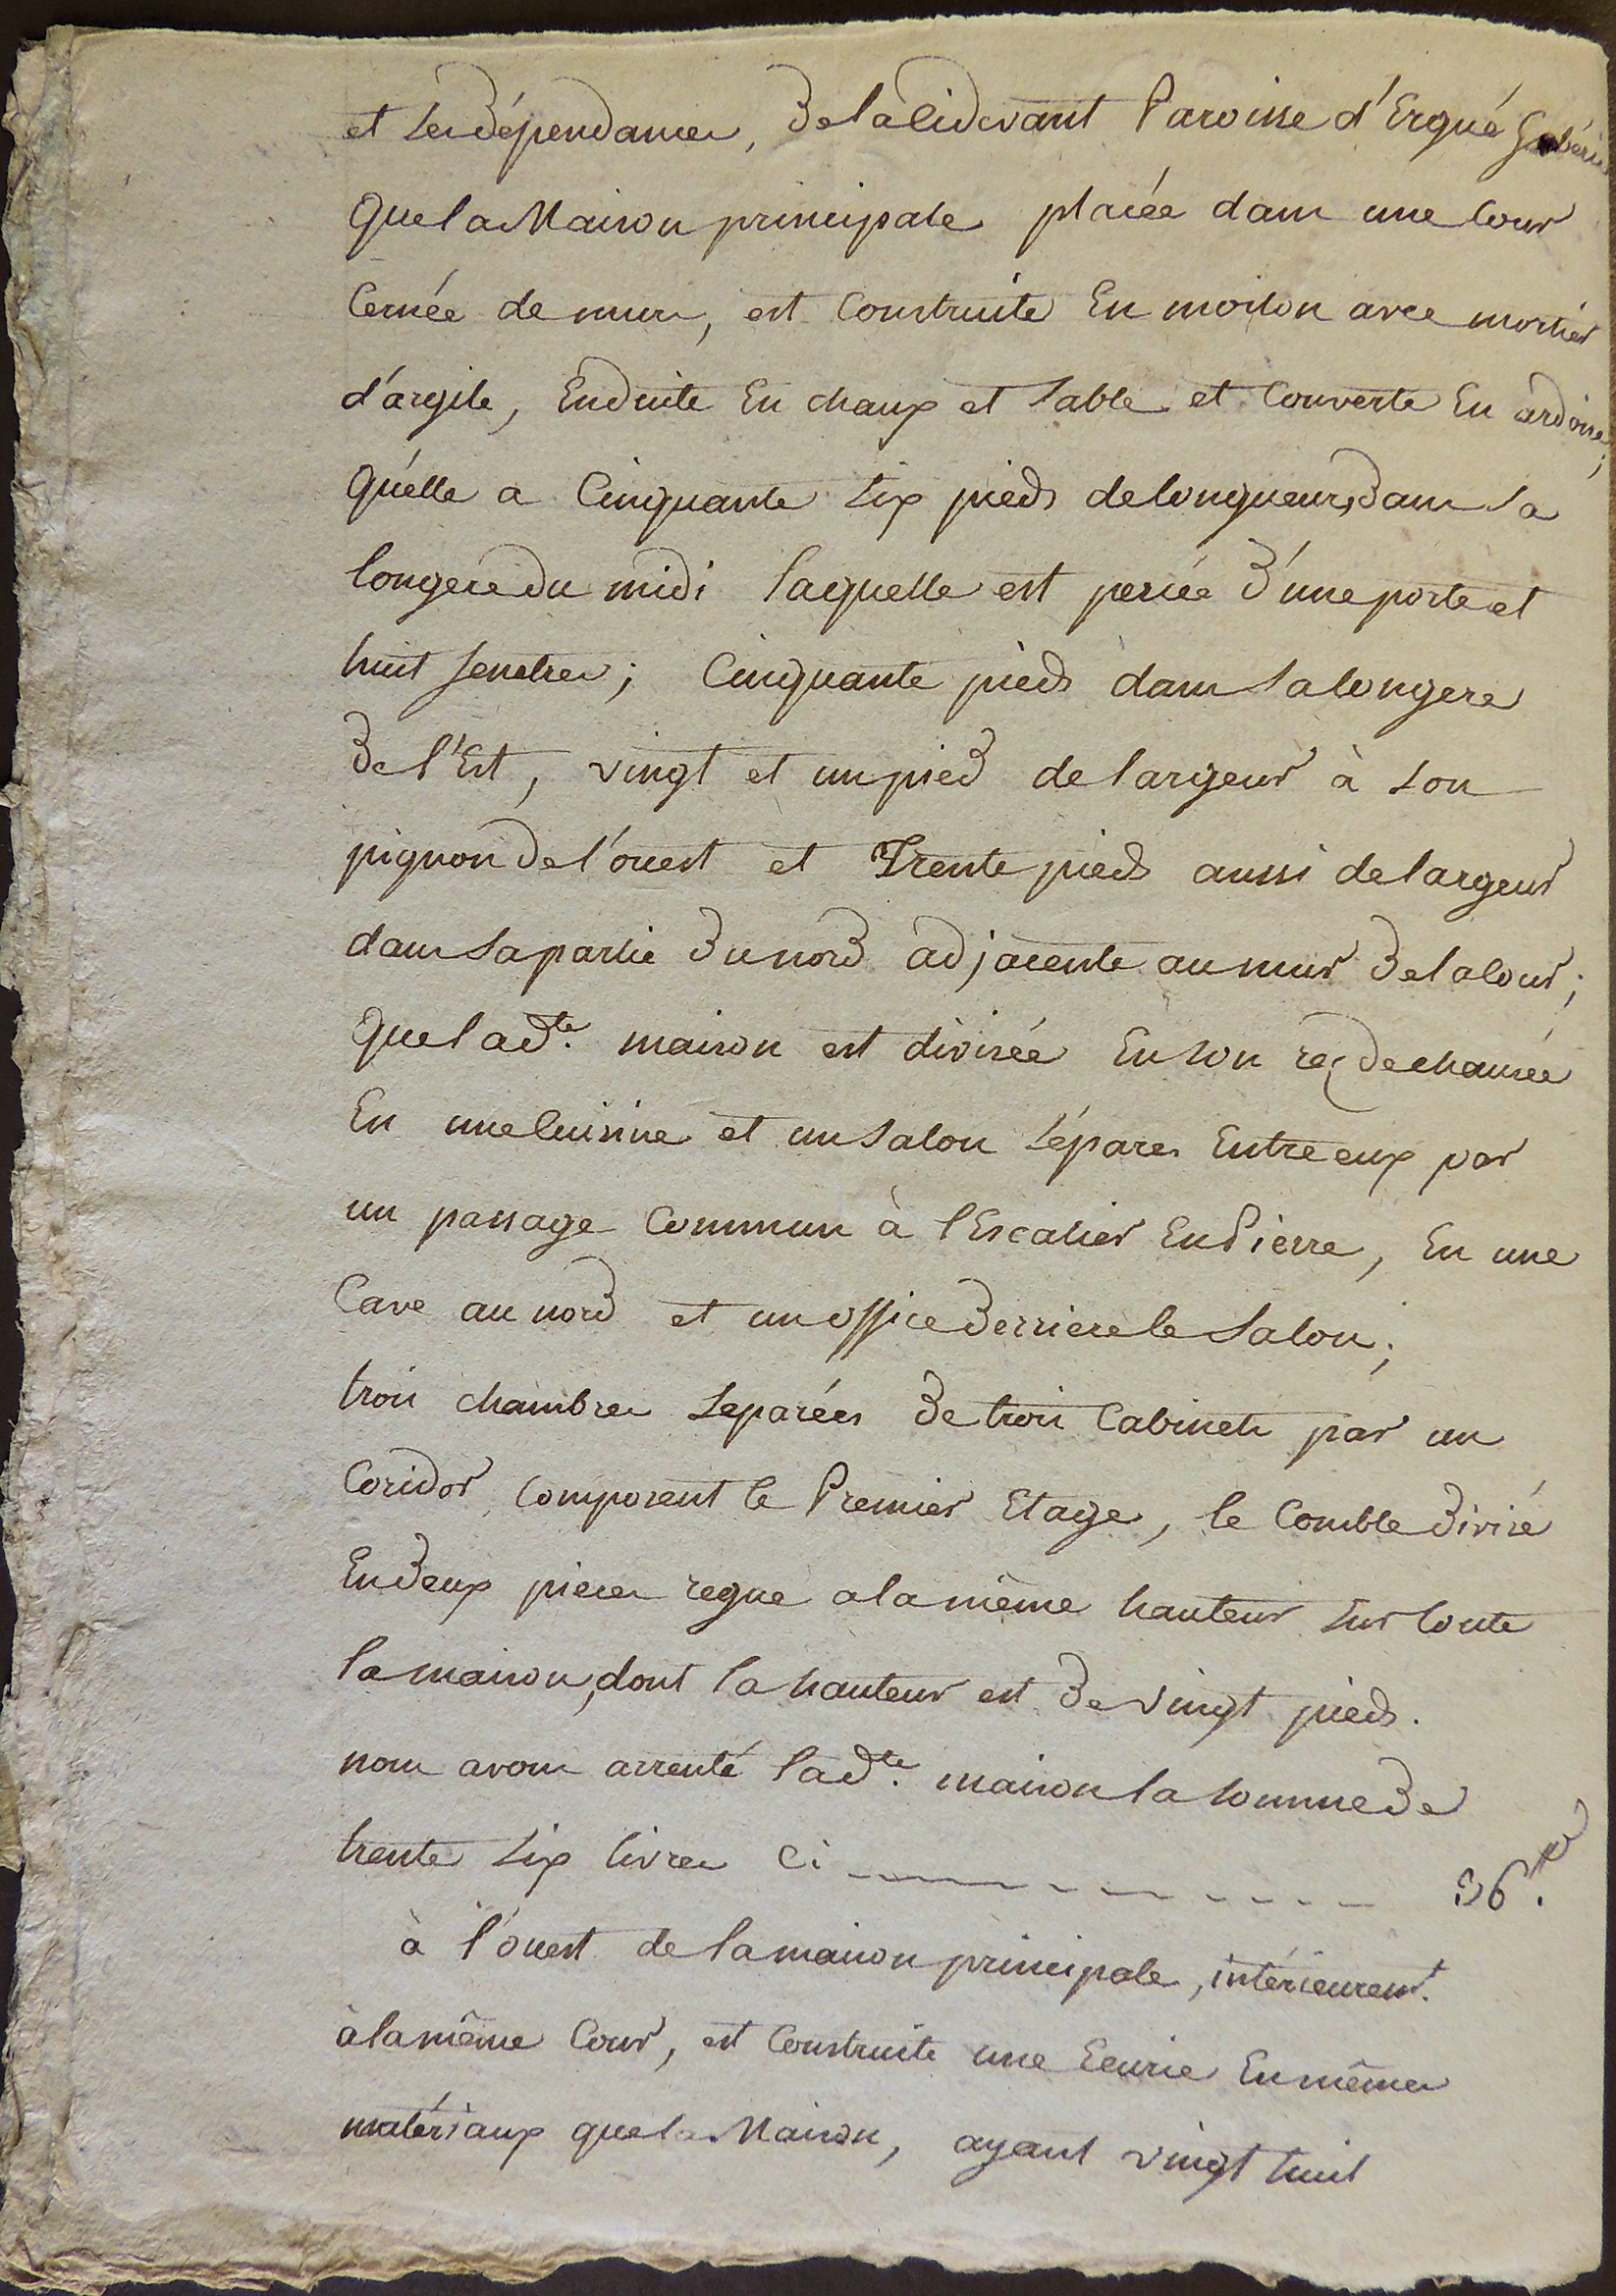 et ses dépendances, de la cidevant Paroisse d'Ergué Gabéric
Que la Maison principale placée dans une Cour
Cernée de murs, est Construite En moilon avec mortier
d'argile, Enduite En chaux et sable et Couverte En ardoise;
Qu'elle a Cinquante six pieds de longueur, dans sa
longere du midi laquelle est percée d'une porte et
huit fenetres; Cinquante pieds dans sa longere
de l'Est, vingt et un pied de largeur à son
pignon de l'ouest et Trente pieds aussi de largeur
dans sa partie du nord adjacente au mur de la Cour;
Que lad.te maison est divisée En son rez de chaussée
En une Cuisine et un salon séparés Entre eux par
un passage Commun à l'Escalier En Pierre, En une
Cave au nord et un office derriere le salon;
trois chambres separées de trois Cabinets par un
Coridor, Composent le Premier Etage, le Comble divisé
En deux pieces regne a la même hauteur sur toute
la maison, dont la hauteur est de vingt pieds.
nous avons arrenté lad.te maison la somme de
trente six livres Ci ---------- 36.tt
à l'ouest de la maison principale, intérieurem.t
à la même Cour, est Construite une Ecurie En mêmes
matériaux que la Maison, ayant vingt huit